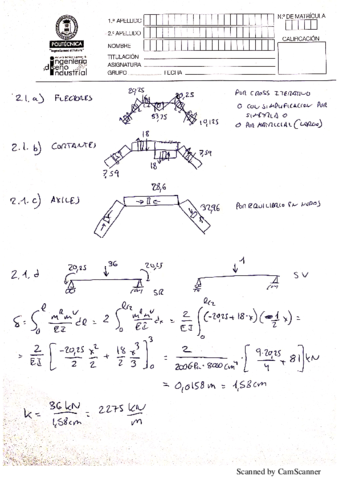 1.er APELLIDO
2.º APELLIDO
NOMBRE
TITULACIÓN
ASIGNATURA
GRUPO FECHA
N.º DE MATRÍCULA
CALIFICACIÓN
POLITÉCNICA
ingeniería
diseño
industrial
2.1. a) FLECTORES
20,25 20,25
33,75
10,125
POR CROSS ITERATIVO
O CON SIMPLIFICACION POR
SIMETRIA O
O POR MATRICIAL (LARGO)
2.1. b) CORTANTES
18
18
7,59
7,59
2.1. c) AXILES
28,6
32,96
POR EQUILIBRIO EN NUDOS
2.1. d
20,25 36 20,25
SR
1
SV
δ = ∫₀^ℓ m^R m^V / EI dℓ = 2 ∫₀^{ℓ/2} m^R m^V / EI dx = 2/EI ∫₀^{ℓ/2} (-20,25 + 18·x)(1/2 x) =
= 2/EI [ -20,25/2 x²/2 + 18/2 x³/3 ]₀³ = 2 / 200GPa · 8000cm⁴ · [ -9·20,25/4 + 81 ] kN
= 0,0158m = 1,58cm
k = 36 kN / 1,58cm = 2275 kN/m
Scanned by CamScanner